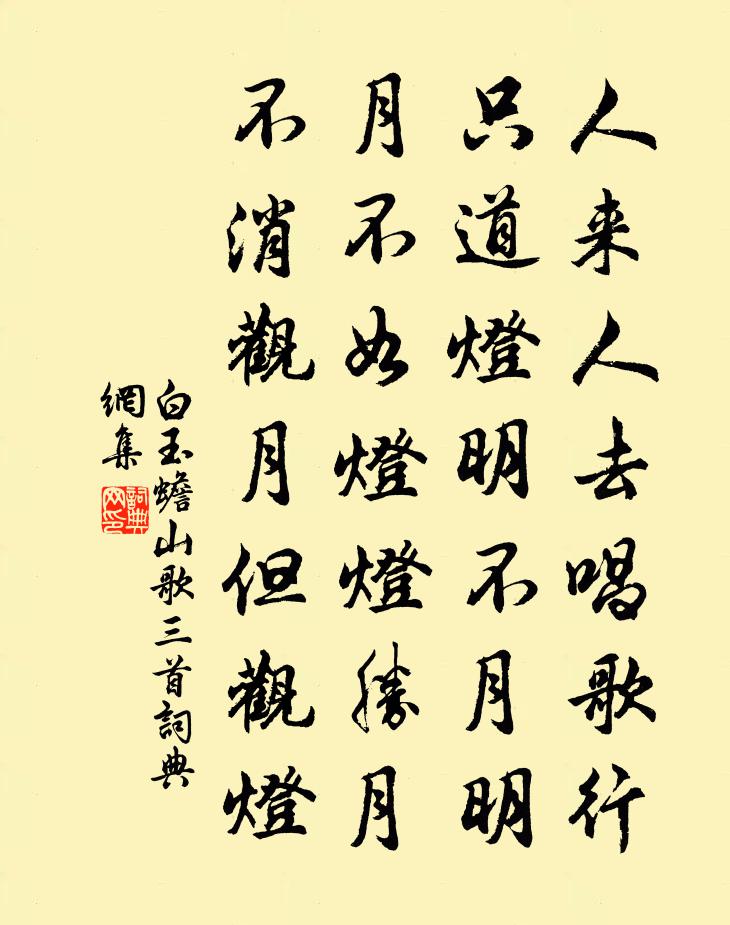 人来人去唱歌行
只道燈明不月明
月不如燈燈勝月
不消觀月但觀燈
白玉蟾山歌三首詞典
網集
詞典
网印